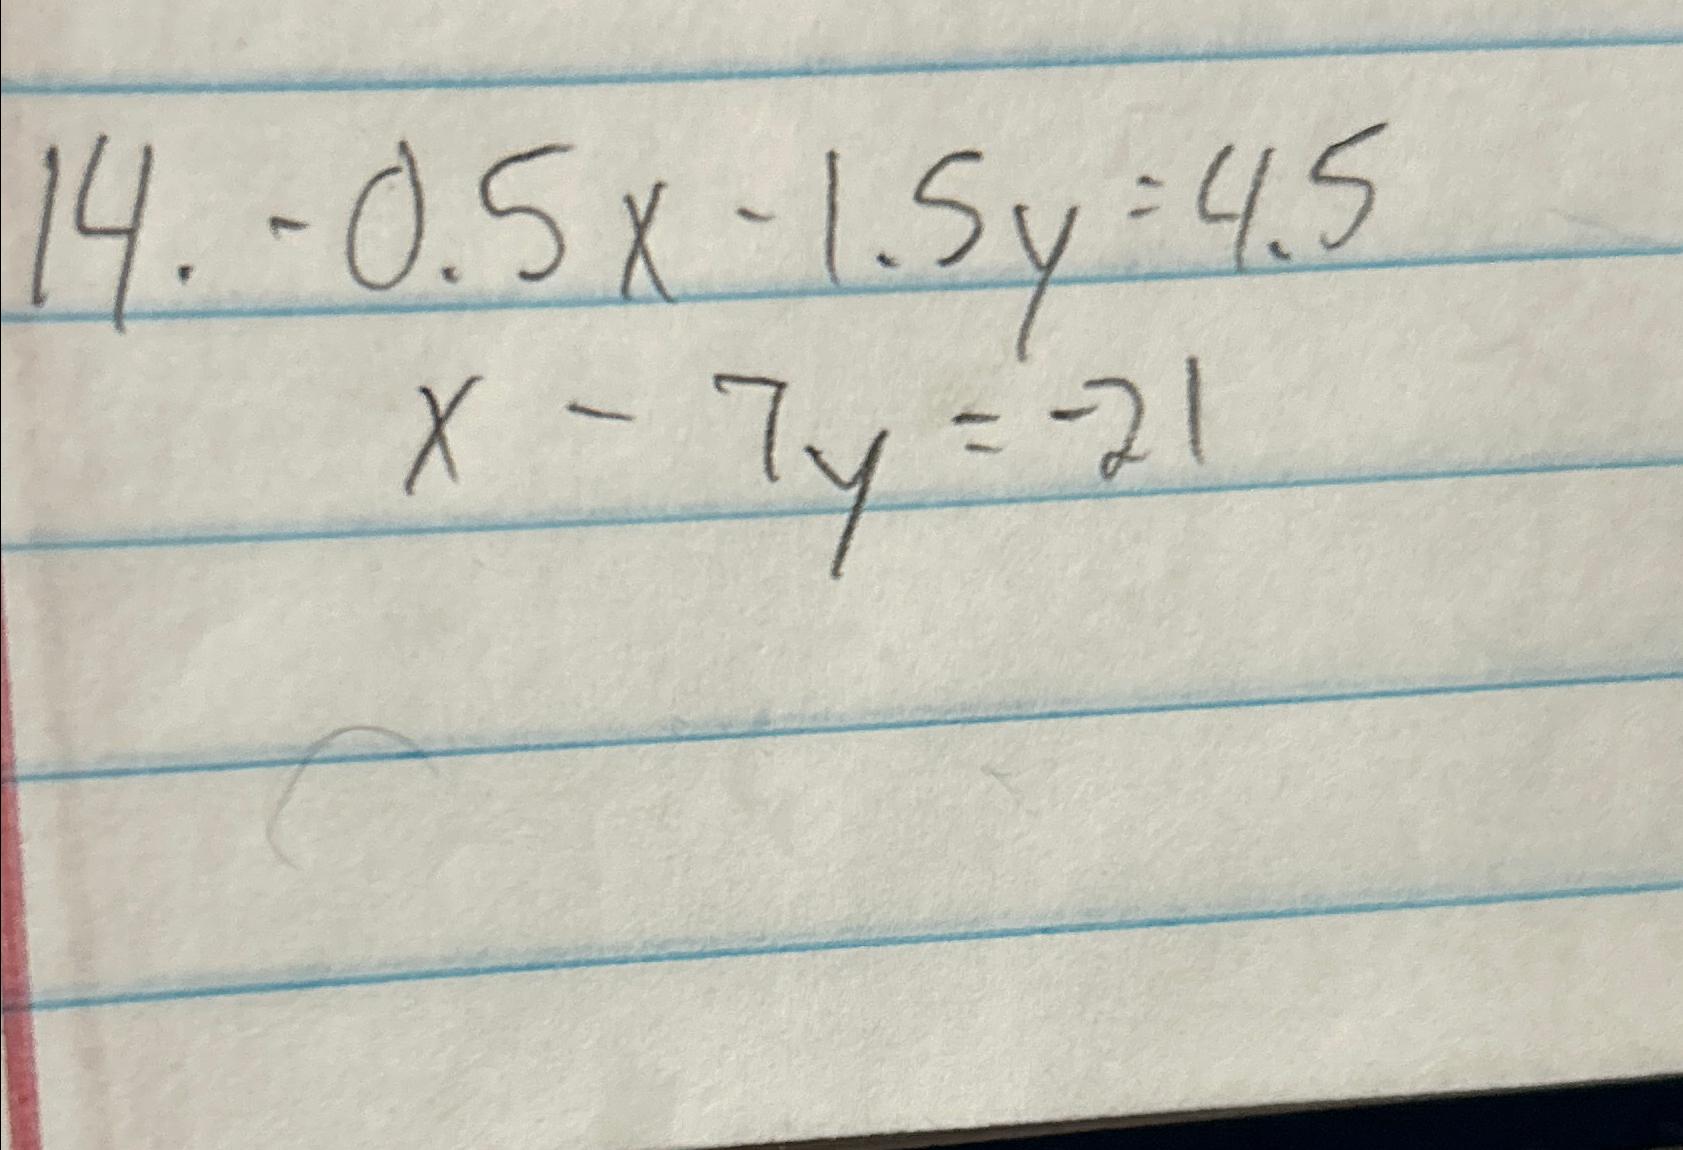 14. -0.5x - 1.5y = 4.5
x - 7y = -21